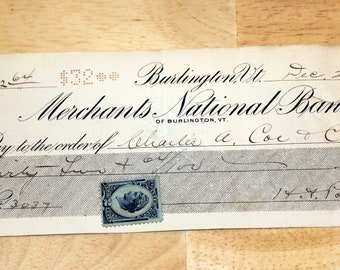 64 $32** Burlington, Vt. Dec. 2
Merchants National Ban
OF BURLINGTON, VT.
Pay to the order of Charles A. Coe & C
64/100
3037 H. H.